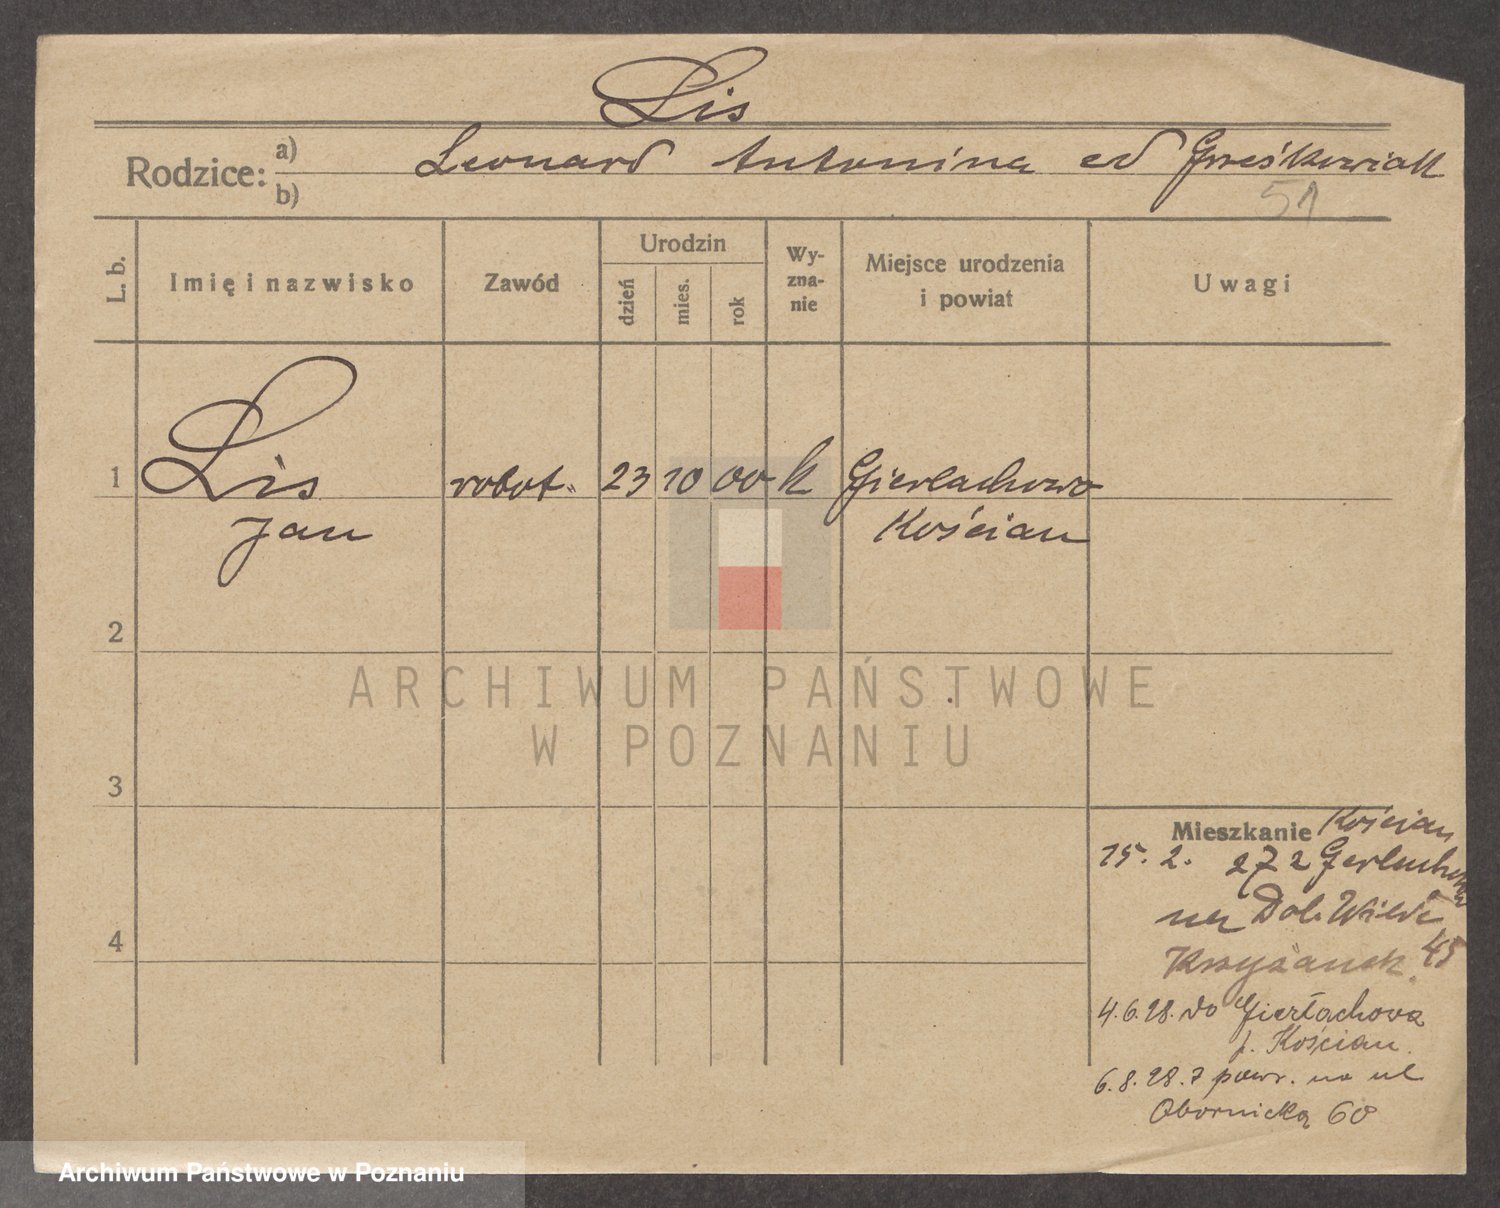 Lis
Rodzice: a) b) Leonard Antonina od Grześkowiak
51
L. b. Imię i nazwisko Zawód Urodzin dzień mies. rok Wy-zna-nie Miejsce urodzenia i powiat Uwagi
1 Lis robot. 23 10 00 k Gierlachowo
Jan Kościan
2
ARCHIWUM PAŃSTWOWE
W POZNANIU
3
Mieszkanie Kościan
15. 2. 272
na Dol. Wilde 45
Krzyżanek
4
4.6.28. do Gierłachowa
p. Kościan
6.8.28. powr. na ul
Obornicką 60
Archiwum Państwowe w Poznaniu